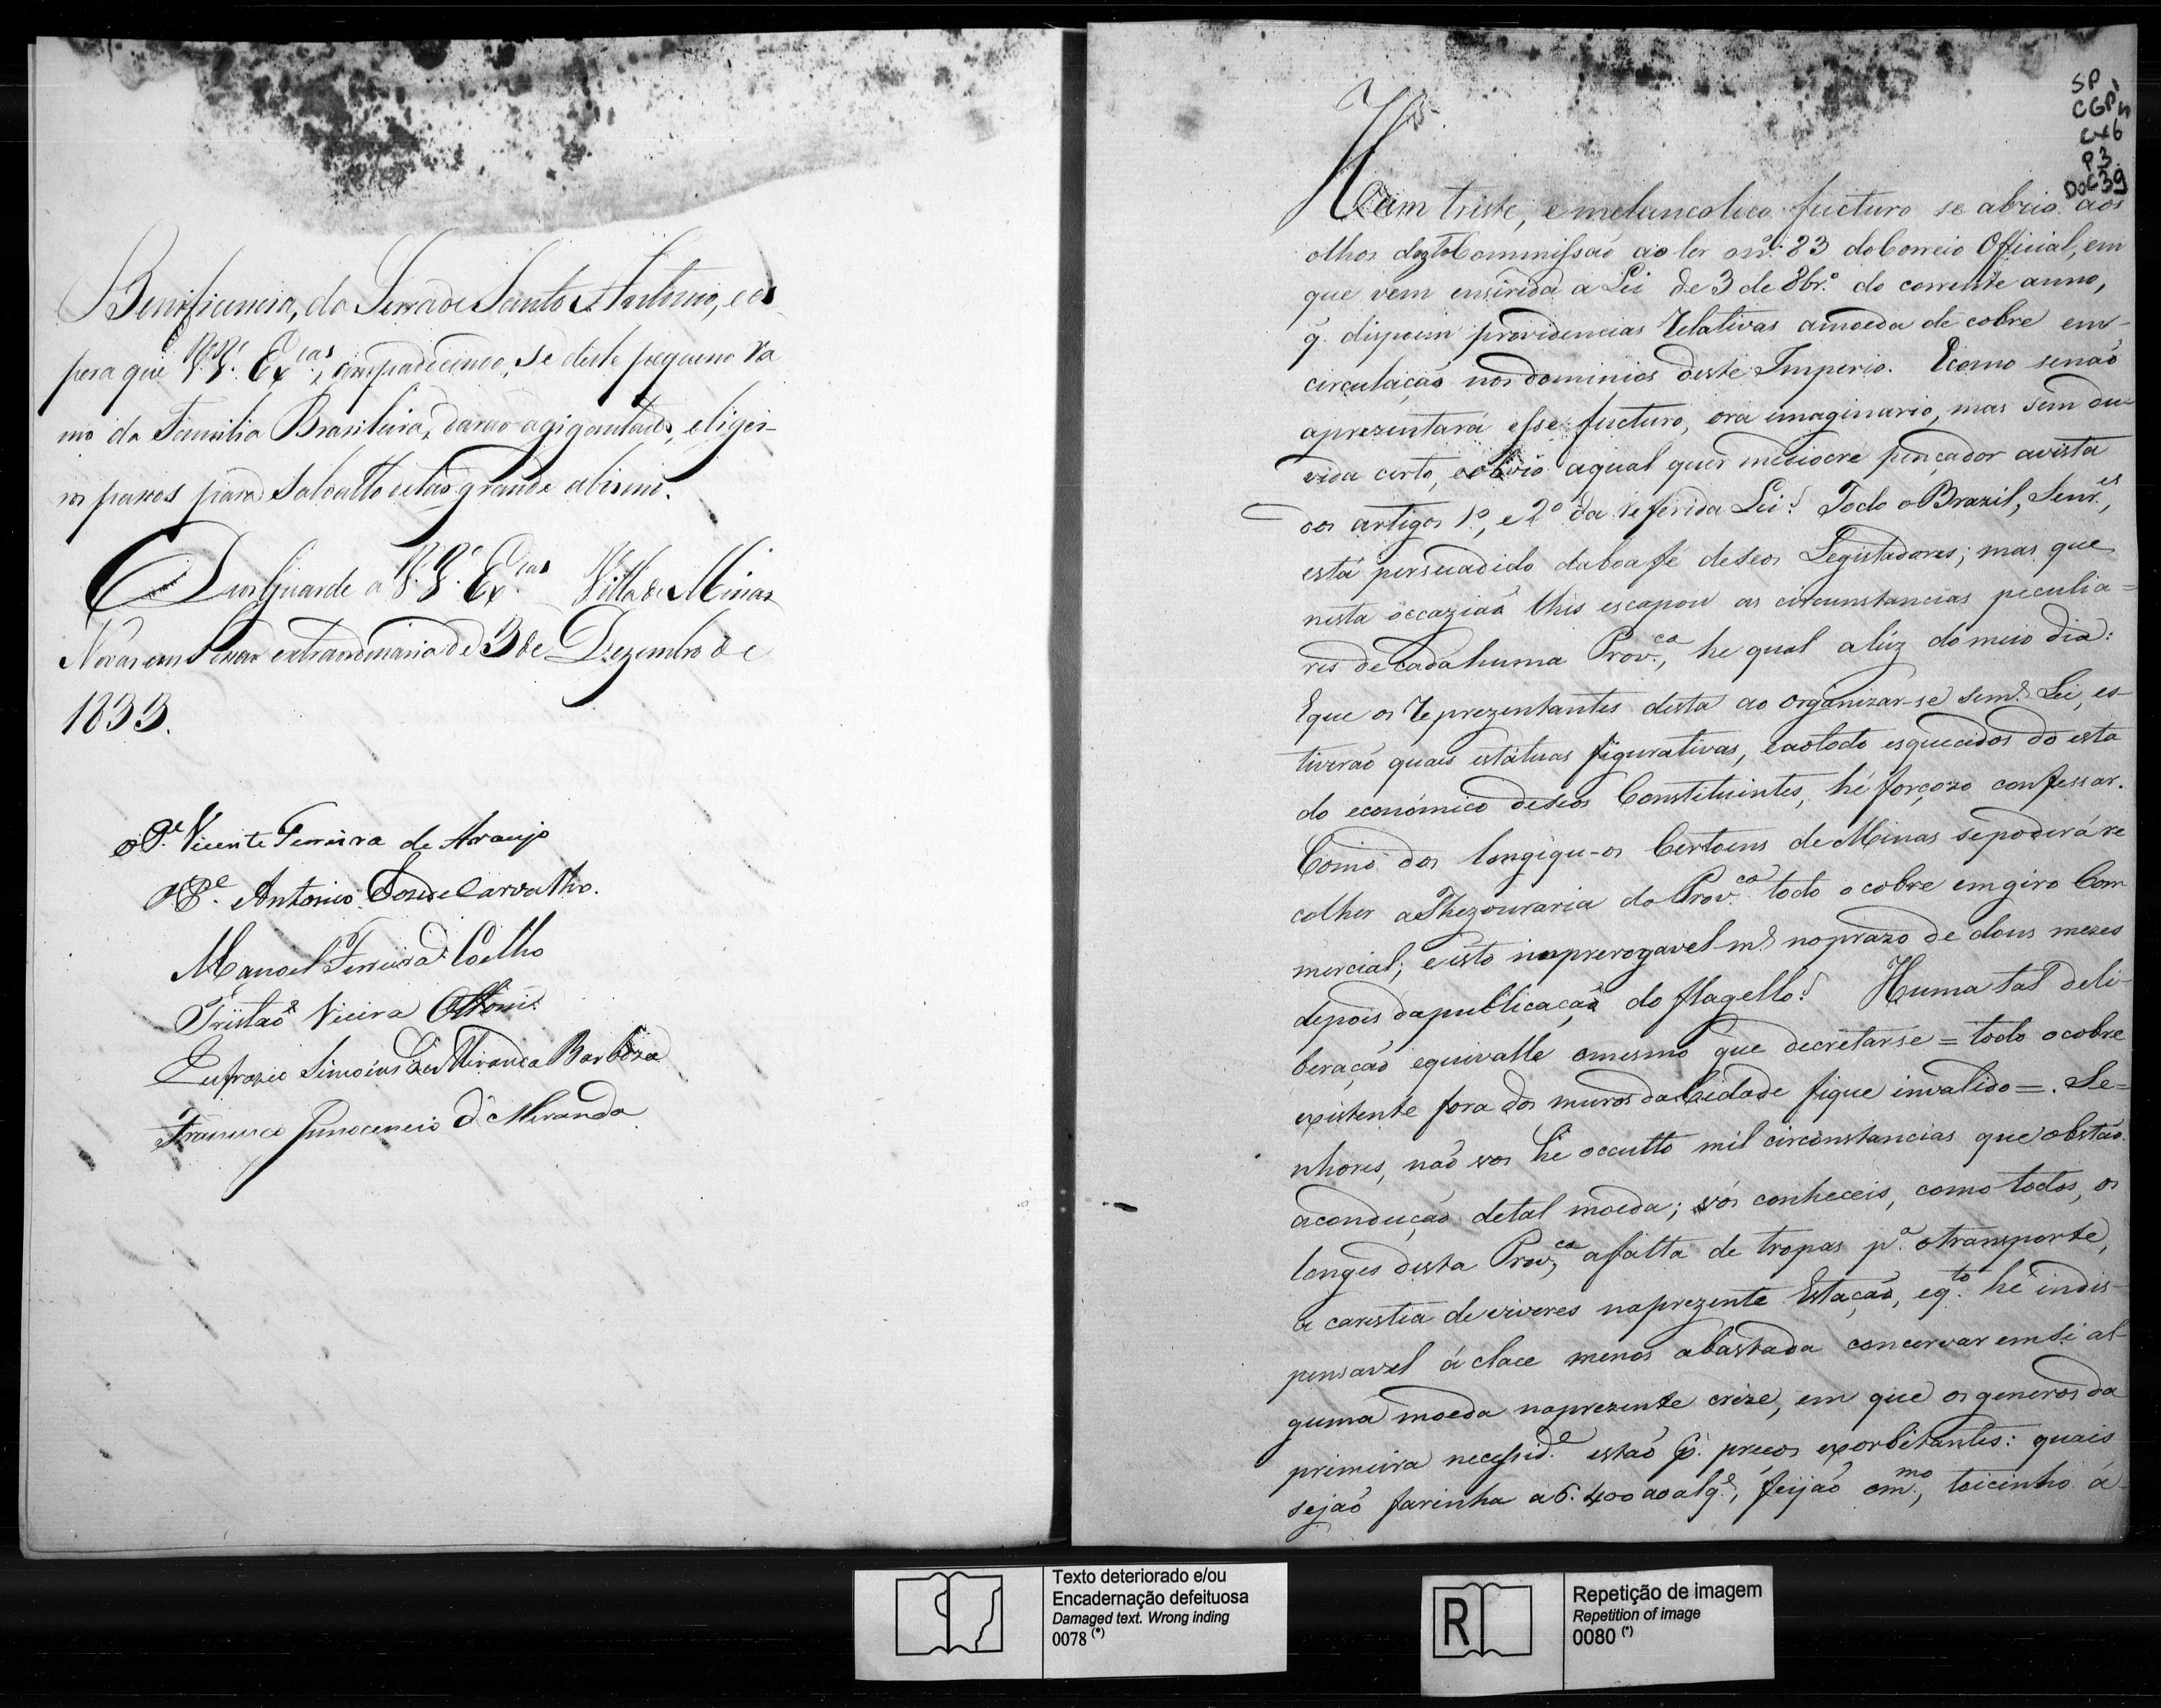 Benificencia, da Serra de Santo Antonio, e es
pera que V.V. Ex.cias, compadecendo, se deste pequeno ra
mo da Familia Brasileira, darão agigantados, e ligei-
ros passos para Salvallo de tão grande abismo.
Deus Guarde a V.V. Ex.cias Villa de Minas
Novas em Sessão extraordinaria de 3 de Dezembro de
1833.
o P.e Vicente Ferreira de Araujo
O P.e Antonio José de Carvalho.
Manoel Ferreira Coelho
Tristão Vieira Ottoni.
Eufrazio Simoens de Miranda Barboza
Francisco Innocencio d'Miranda
SP
CGP 5
cx6
P3
DOC 39
Hum triste, e melancolico fucturo se abrio aos
olhos desta Commissaõ ao ler o n.º 83 do Correio Official, em
que vem ensirida a Lei de 3 de 8br.º do corrente anno,
q. dispoem providencias relativas a moeda de cobre em
circulaçaõ nos dominios deste Imperio. E como se naõ
aprezentará esse fucturo, ora imaginario, mas sem du-
vida certo, e obvio a qual quer mediocre pençador a vista
dos artigos 1º, e 2º da referida Lei? Todo o Brazil, Senr.es,
está persuadido da boa fé de seos Legisladores; mas que
nesta occaziaõ lhes escapou as circunstancias peculia=
res de cada huma Prov.ca, he qual a lúz do meio dia:
E que os Reprezentantes desta ao organizar-se sem.e Lei, es-
tiveraõ quais estátuas figurativas, e ao todo esquecidos do esta
do económico de seos Constituintes, hé forçozo confessar.
Como dos longiqu-os Certoens de Minas se poderá re
colher a Thezouraria da Prov.ca todo o cobre em giro Com
mercial; e isto improrogavel m.e no prazo de dous mezes
depois da publicaçaõ do flagello? Huma tal deli-
beraçaõ equivalle o mesmo que decretar-se = todo o cobre
existente fora dos muros da Cidade fique invalido =. Se=
nhores, naõ vos he occulto mil circonstancias que obstaõ
a conduçaõ de tal moeda; vós conheceis, como todos, os
longes desta Prov.ca, a falta de tropas p.a o transporte,
a carestia de viveres na prezente Estaçaõ, e q.to hé indis-
pensavel á clace menos abastada concervar em si al-
guma moeda na prezente crize, em que os generos da
primeira necessid.e estaõ p. precos exorbitantes: quais
sejaõ farinha a 6.400 ao alq.e, feijaõ o m.mo, toicinho á
Texto deteriorado e/ou
Encadernação defeituosa
Damaged text. Wrong inding
0078 (*)
R
Repetição de imagem
Repetition of image
0080 (*)